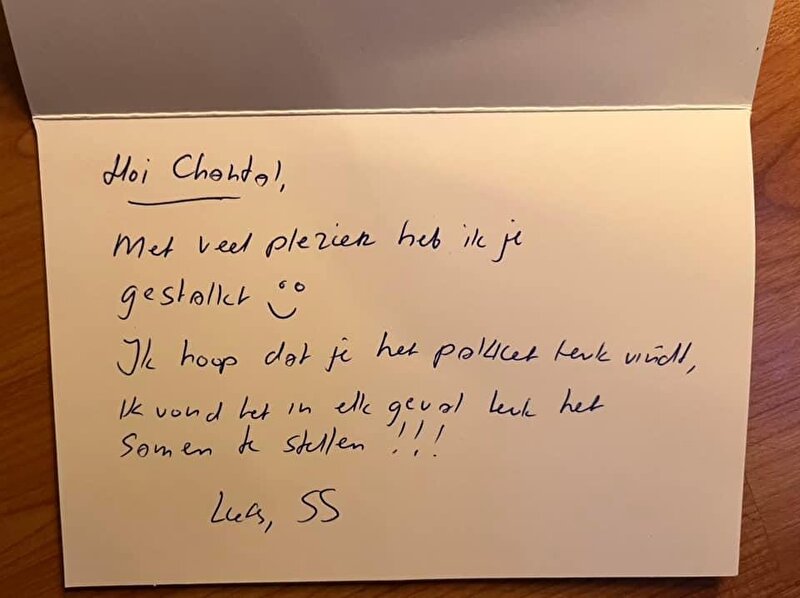 Hoi Chantal,
Met veel plezier heb ik je
gestalkt
Ik hoop dat je het pakket leuk vindt,
Ik vond het in elk geval leuk het
samen te stellen !!!
SS